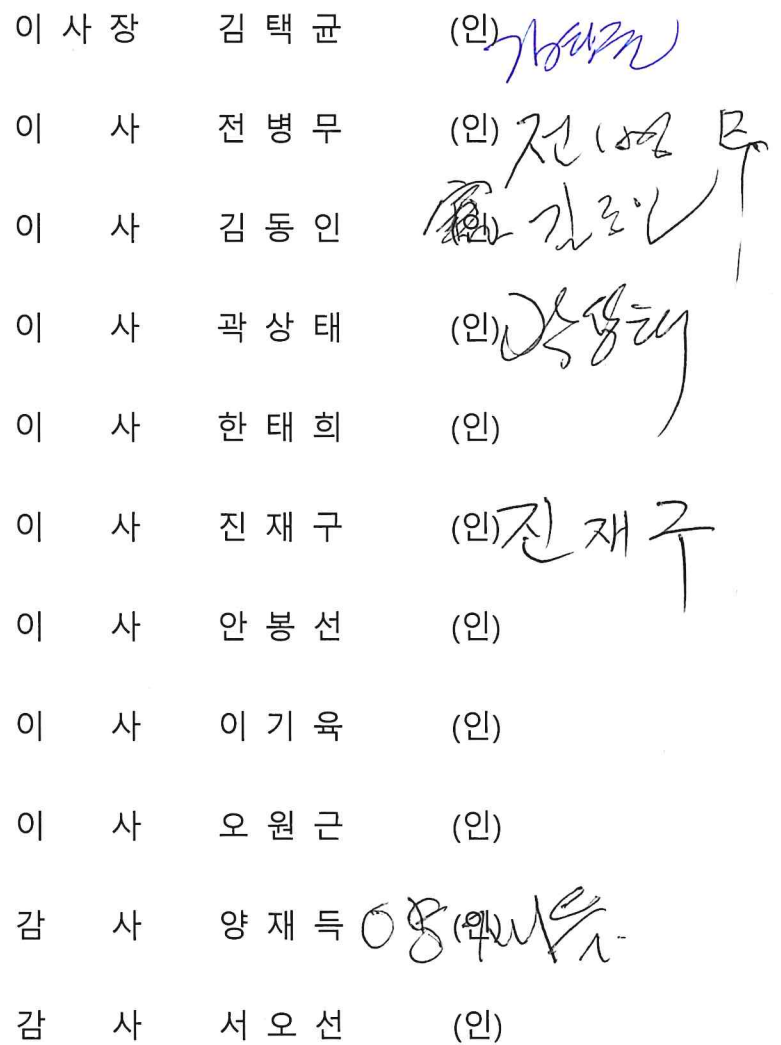 이 사 장 김 택 균 (인) 김택균
이 사 전 병 무 (인) 전병무
이 사 김 동 인 (인) 김동인
이 사 곽 상 태 (인) 곽상태
이 사 한 태 희 (인)
이 사 진 재 구 (인) 진재구
이 사 안 봉 선 (인)
이 사 이 기 육 (인)
이 사 오 원 근 (인)
감 사 양 재 득 (인) 양재득
감 사 서 오 선 (인)